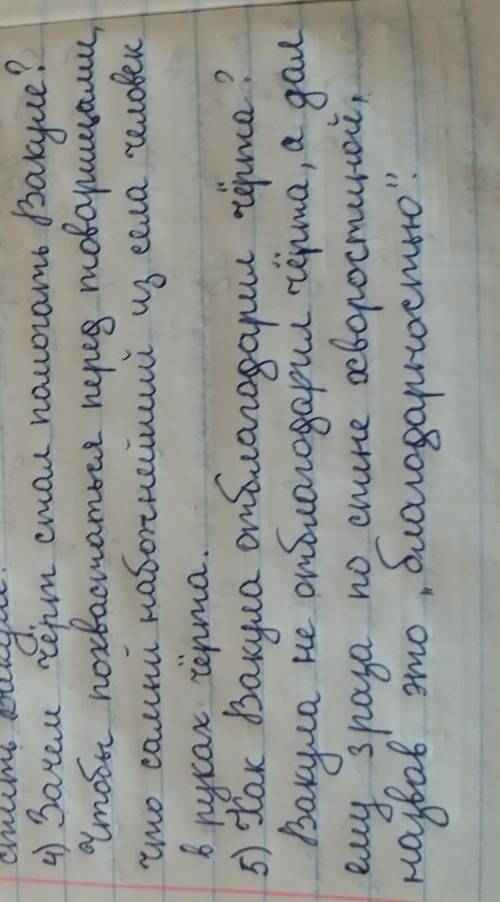 стить
4) Зачем чёрт стал помогать Вакуле?
Чтобы похвастаться перед товарищами,
что самый набожнейший из села человек
в руках чёрта.
5) Как Вакула отблагодарил чёрта?
Вакула не отблагодарил чёрта, а дал
ему 3 раза по спине хворостиной,
назвав это „благодарностью".